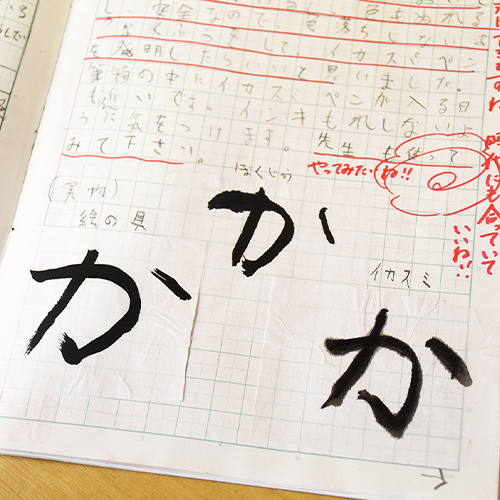 し、安全なので、
くふうをして、イカスミペン
を発明したらいいと思いました。
筆箱の中にイカスミペンが入る日
も近いです。インキもれしないよ
うに気をつけます。先生も使って
みて下さい。
やってみたいね!!
時代にも合っていて
いいね!!
(実物)
ぼくじゅう
か
絵の具
か
イカスミ
か